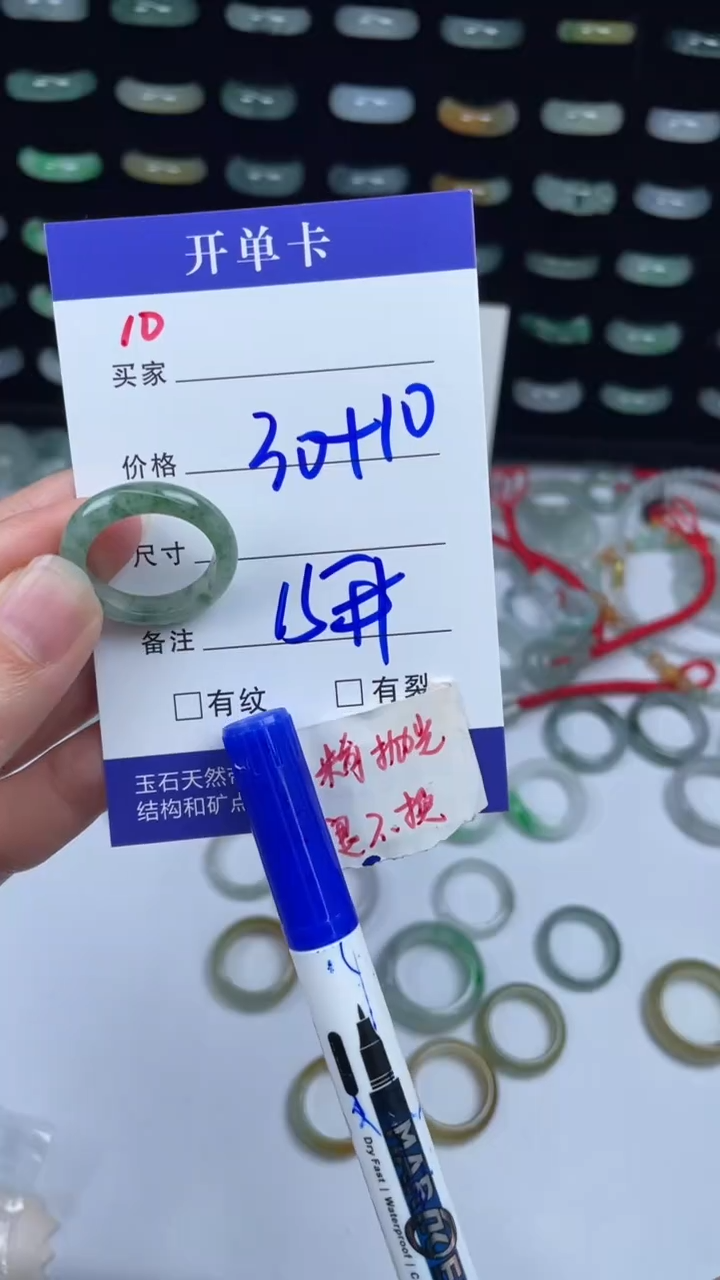 开单卡
10
买家
价格 30+10
尺寸
备注 15
□有纹 □有裂
精抛光
不换
玉石天然
结构和矿点
Dry Fast | Waterproof | C